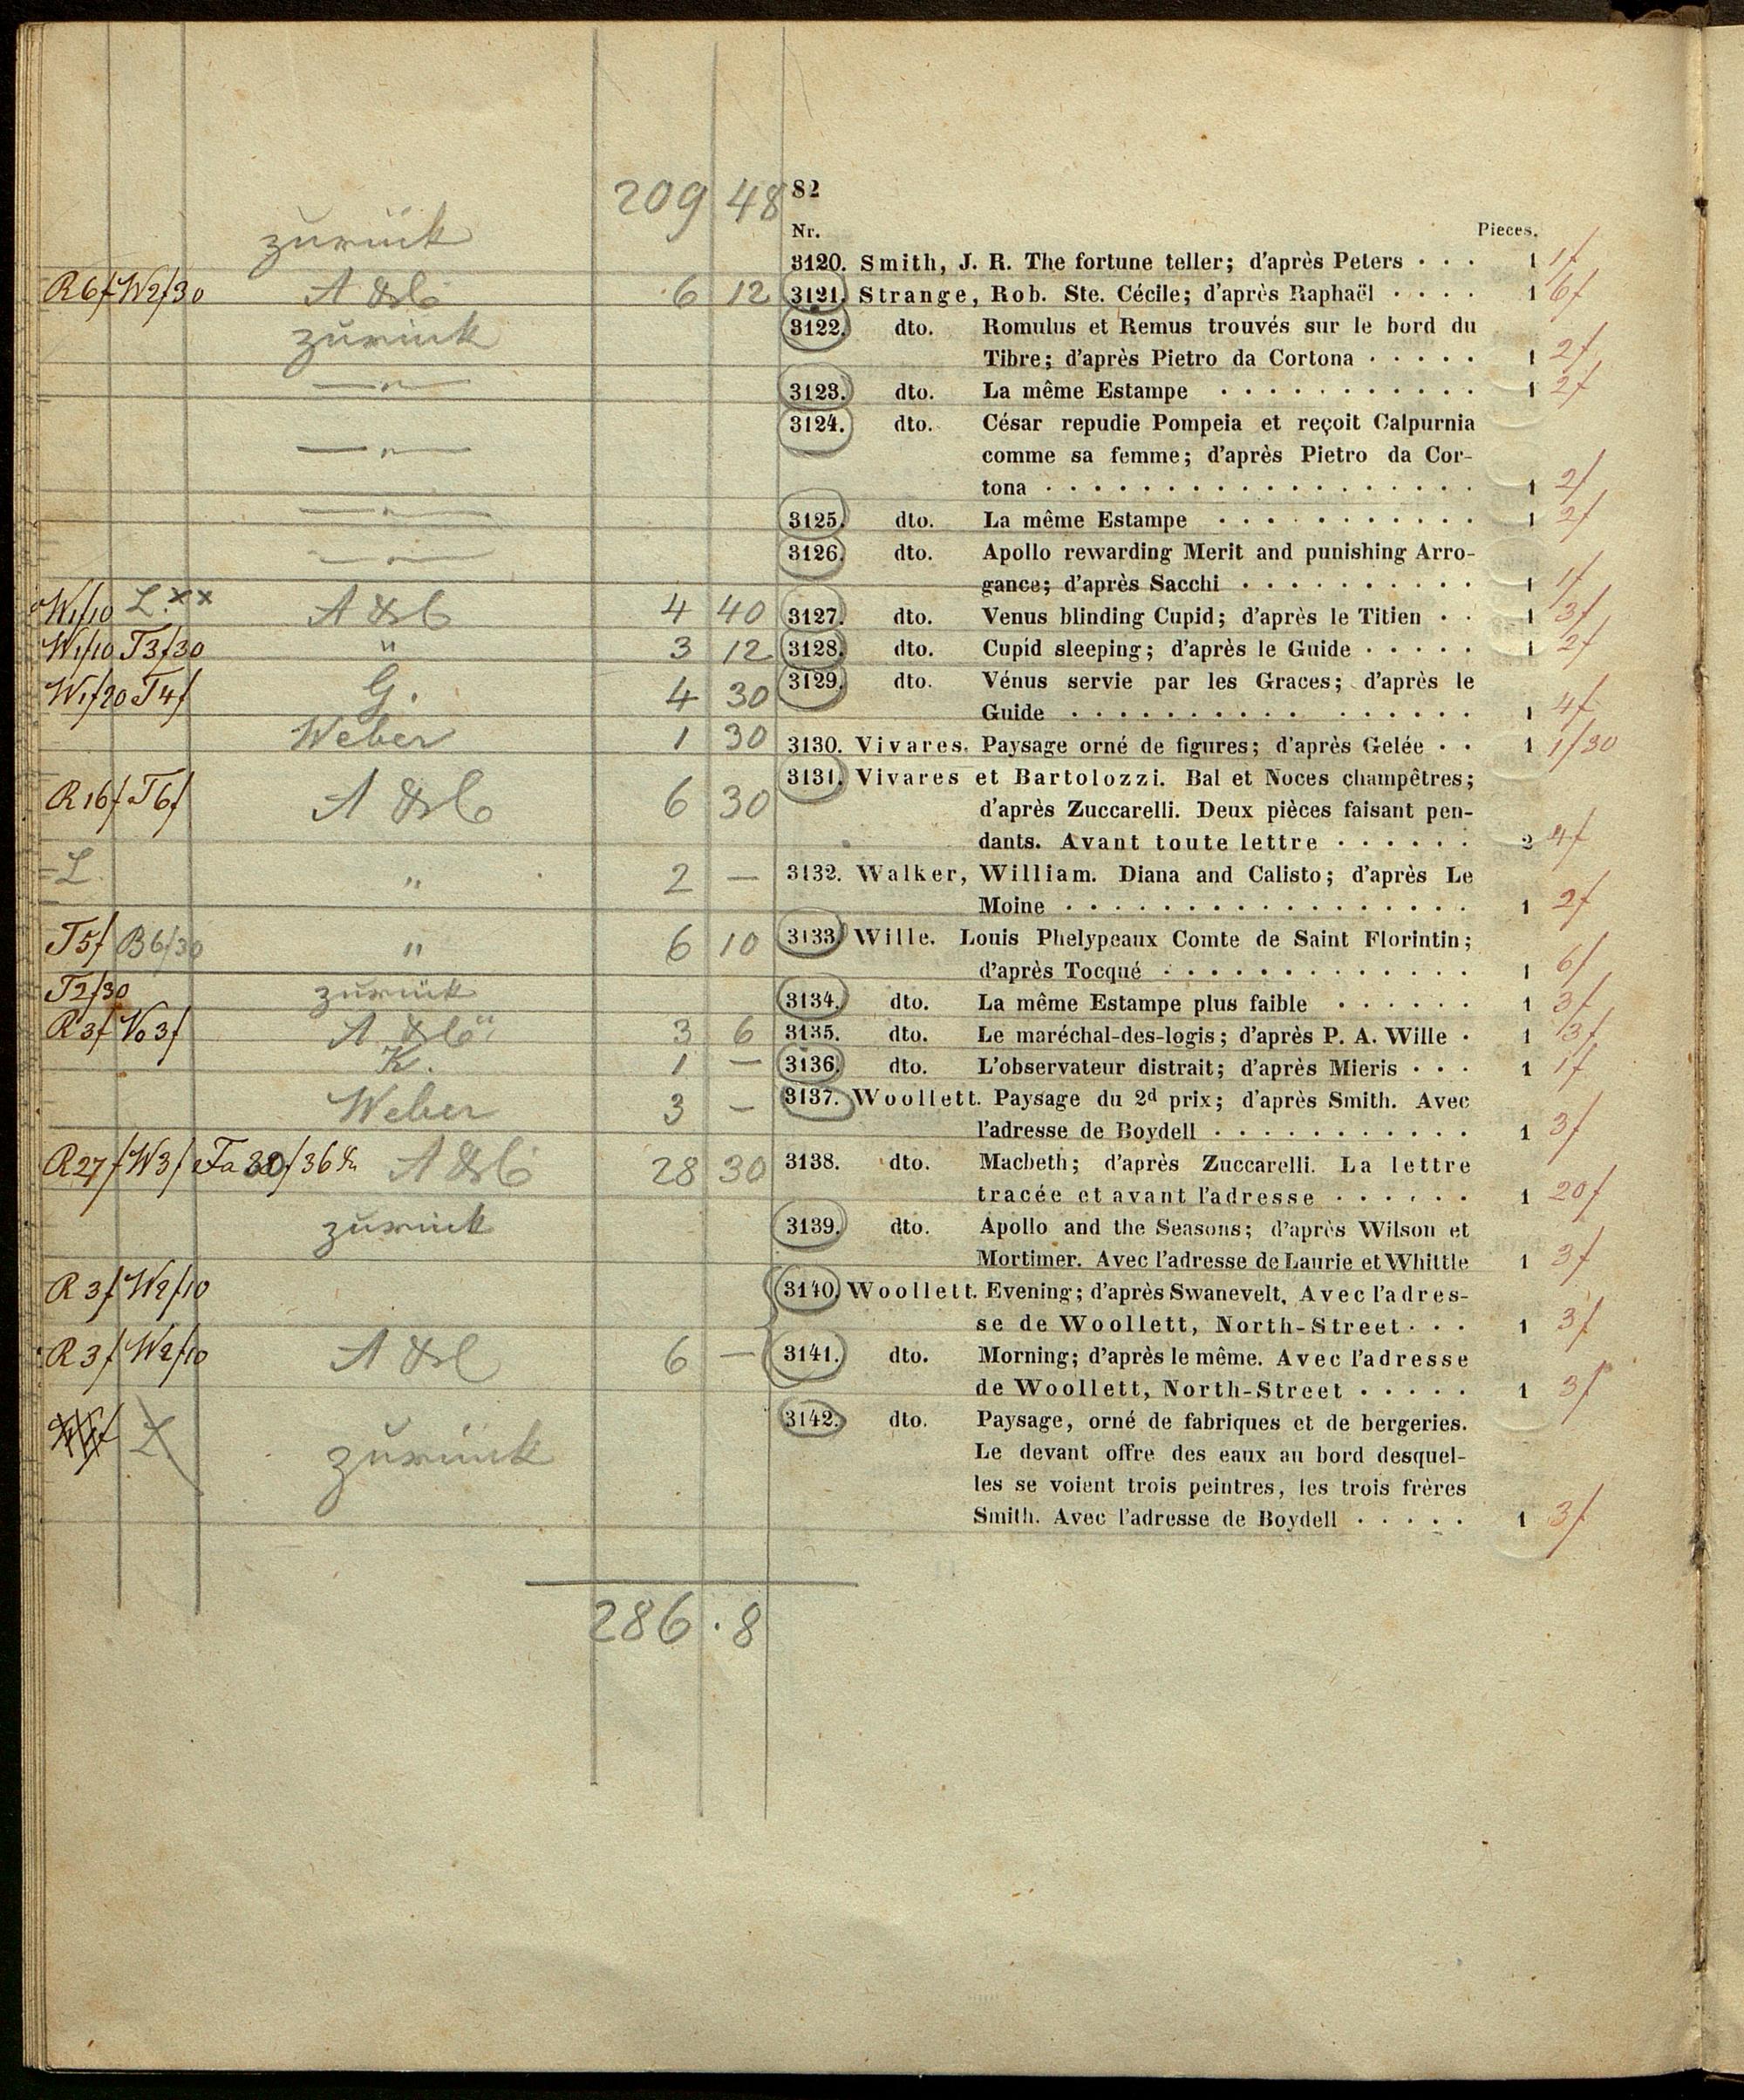 209 48 82
zurück
Nr. Pieces.
3120. Smith, J. R. The fortune teller; d'après Peters . . . 1 1f
R6f W2f30 6 12 3121. Strange, Rob. Ste. Cécile; d'après Raphaël . . . . 1 6f
zurück 3122. dto. Romulus et Remus trouvés sur le bord du
Tibre; d'après Pietro da Cortona . . . . . 1 2f
—"— 3123. dto. La même Estampe . . . . . . . . . . . 1 2f
3124. dto. César repudie Pompeia et reçoit Calpurnia
—"— comme sa femme; d'après Pietro da Cor-
tona . . . . . . . . . . . . . . . . . . 1 2f
—"— 3125. dto. La même Estampe . . . . . . . . . . . 1 2f
—"— 3126. dto. Apollo rewarding Merit and punishing Arro-
gance; d'après Sacchi . . . . . . . . . . 1 1f
W1f10 L.xx 4 40 3127. dto. Venus blinding Cupid; d'après le Titien . . 1 3f
W1f10 T3f30 " 3 12 3128. dto. Cupid sleeping; d'après le Guide . . . . . 1 2f
W1f20 T4f G. 4 30 3129. dto. Vénus servie par les Graces; d'après le
Guide . . . . . . . . . . . . . . . . 1 4f
Weber 1 30 3130. Vivares. Paysage orné de figures; d'après Gelée . . 1 1f30
3131. Vivares et Bartolozzi. Bal et Noces champêtres;
R16f T6f 6 30 d'après Zuccarelli. Deux pièces faisant pen-
dants. Avant toute lettre . . . . . . 2 4f
L. " 2 — 3132. Walker, William. Diana and Calisto; d'après Le
Moine . . . . . . . . . . . . . . . . . 1 2f
T5f B6f30 " 6 10 3133. Wille. Louis Phelypeaux Comte de Saint Florintin;
d'après Tocqué . . . . . . . . . . . . . 1 6f
T2f30 zurück 3134. dto. La même Estampe plus faible . . . . . . 1 3f
R3f Vo3f 3 6 3135. dto. Le maréchal-des-logis; d'après P. A. Wille . 1 3f
K. 1 — 3136. dto. L'observateur distrait; d'après Mieris . . . 1 1f
Weber 3 — 3137. Woollett. Paysage du 2d prix; d'après Smith. Avec
l'adresse de Boydell . . . . . . . . . . . 1 3f
R27f W3f 28 30 3138. dto. Macbeth; d'après Zuccarelli. La lettre
tracée et avant l'adresse . . . . . . 1 20f
zurück 3139. dto. Apollo and the Seasons; d'après Wilson et
Mortimer. Avec l'adresse de Laurie et Whittle 1 3f
R3f W2f10 3140. Woollett. Evening; d'après Swanevelt, Avec l'adres-
se de Woollett, North-Street . . . 1 3f
R3f W2f10 6 — 3141. dto. Morning; d'après le même. Avec l'adresse
de Woollett, North-Street . . . . . 1 3f
L 3142. dto. Paysage, orné de fabriques et de bergeries.
zurück Le devant offre des eaux au bord desquel-
les se voient trois peintres, les trois frères
Smith. Avec l'adresse de Boydell . . . . . 1 3f
286 . 8